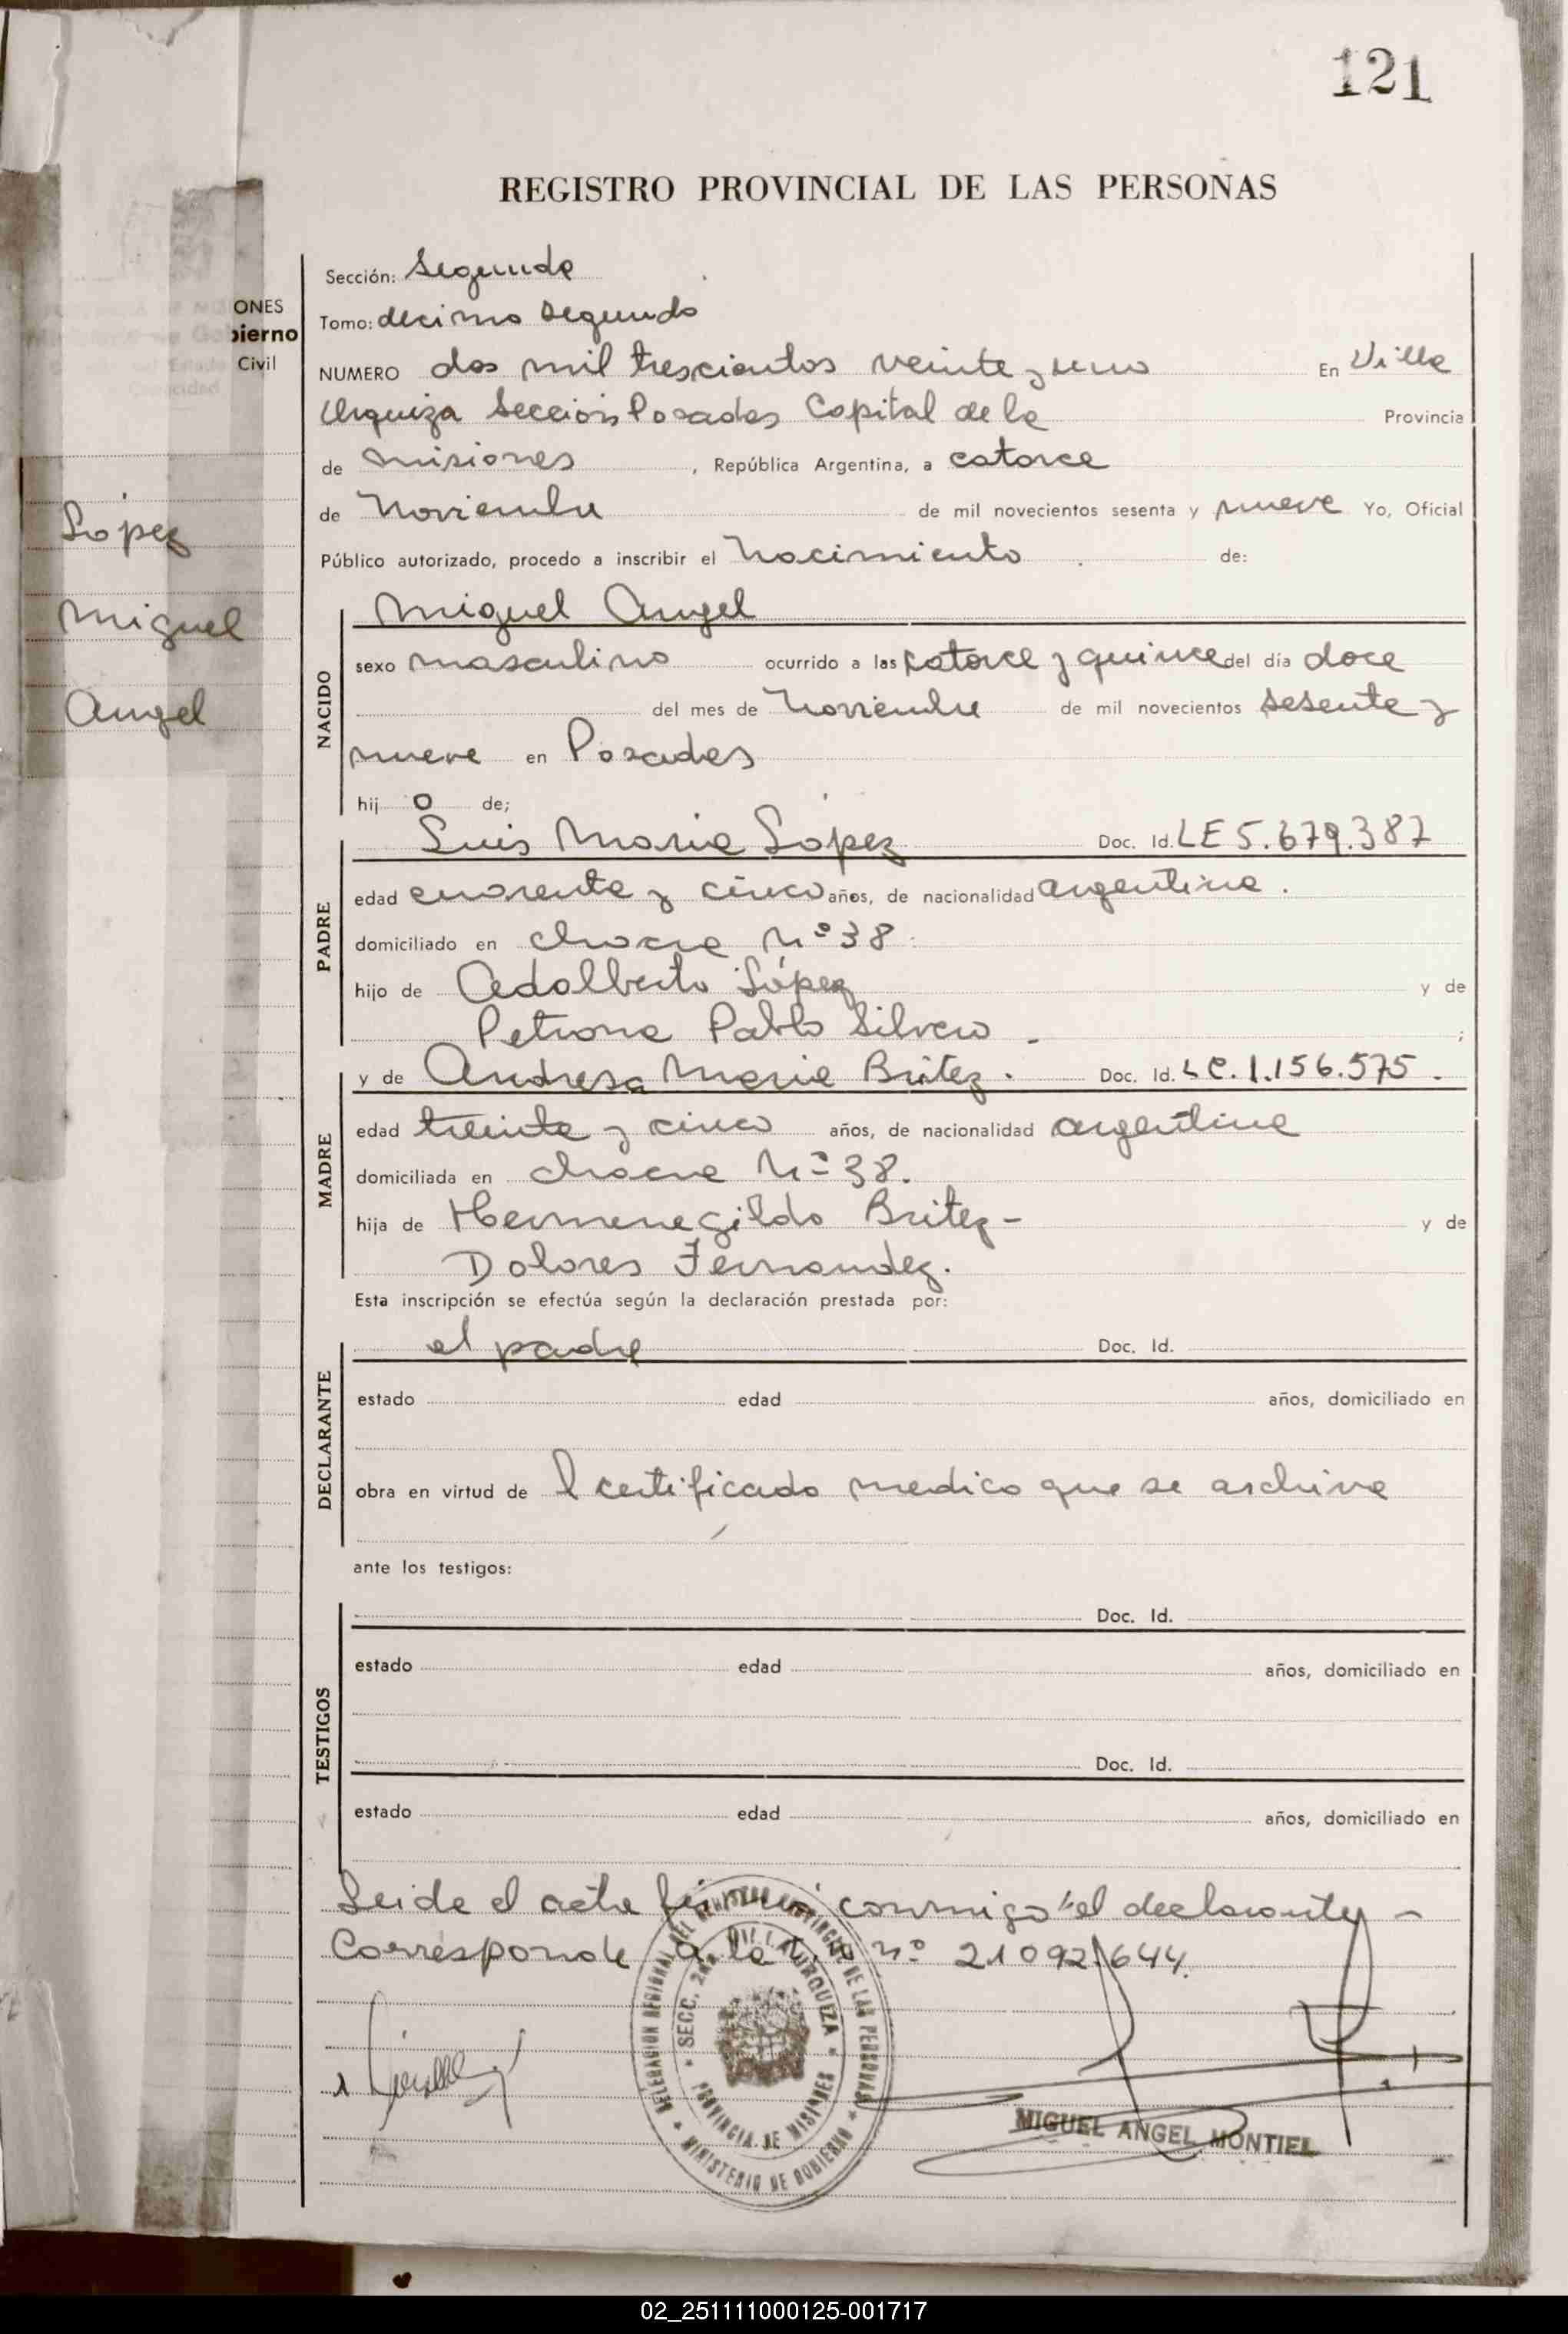 121
REGISTRO PROVINCIAL DE LAS PERSONAS
Sección: Segunda
ONES
bierno
Civil
Tomo: decimo segundo
NUMERO dos mil trescientos veinte y uno En Villa
Urquiza Sección Posadas Capital de la Provincia
de misiones, República Argentina, a catorce
de Noviembre de mil novecientos sesenta y nueve Yo, Oficial
Público autorizado, procedo a inscribir el Nacimiento de:
López
Miguel
Angel
NACIDO
Miguel Angel
sexo masculino ocurrido a las catorce y quince del día doce
del mes de Noviembre de mil novecientos sesenta y
nueve en Posadas
hijo de;
PADRE
Luis Maria López Doc. Id. LE 5.679.387
edad cuarenta y cinco años, de nacionalidad argentina.
domiciliado en chacra Nº 38.
hijo de Adalberto López y de
Petrona Pabla Silvero.;
MADRE
y de Andresa Maria Britez. Doc. Id. LC. 1.156.575.
edad treinta y cinco años, de nacionalidad argentina
domiciliada en chacra Nº 38.
hija de Hermenegildo Britez- y de
Dolores Fernandez.
Esta inscripción se efectúa según la declaración prestada por:
DECLARANTE
el padre Doc. Id.
estado edad años, domiciliado en
obra en virtud de l certificado medico que se archiva
ante los testigos:
TESTIGOS
Doc. Id.
estado edad años, domiciliado en
Doc. Id.
estado edad años, domiciliado en
Leida el acta conmigo el declarante -
Corresponde a la nº 21092.644.
DELEGACION REGIONAL DEL REGISTRO PROVINCIAL DE LAS PERSONAS
SECC. 2da. VILLA URQUIZA
PROVINCIA DE MISIONES
MINISTERIO DE GOBIERNO
MIGUEL ANGEL MONTIEL
02_251111000125-001717